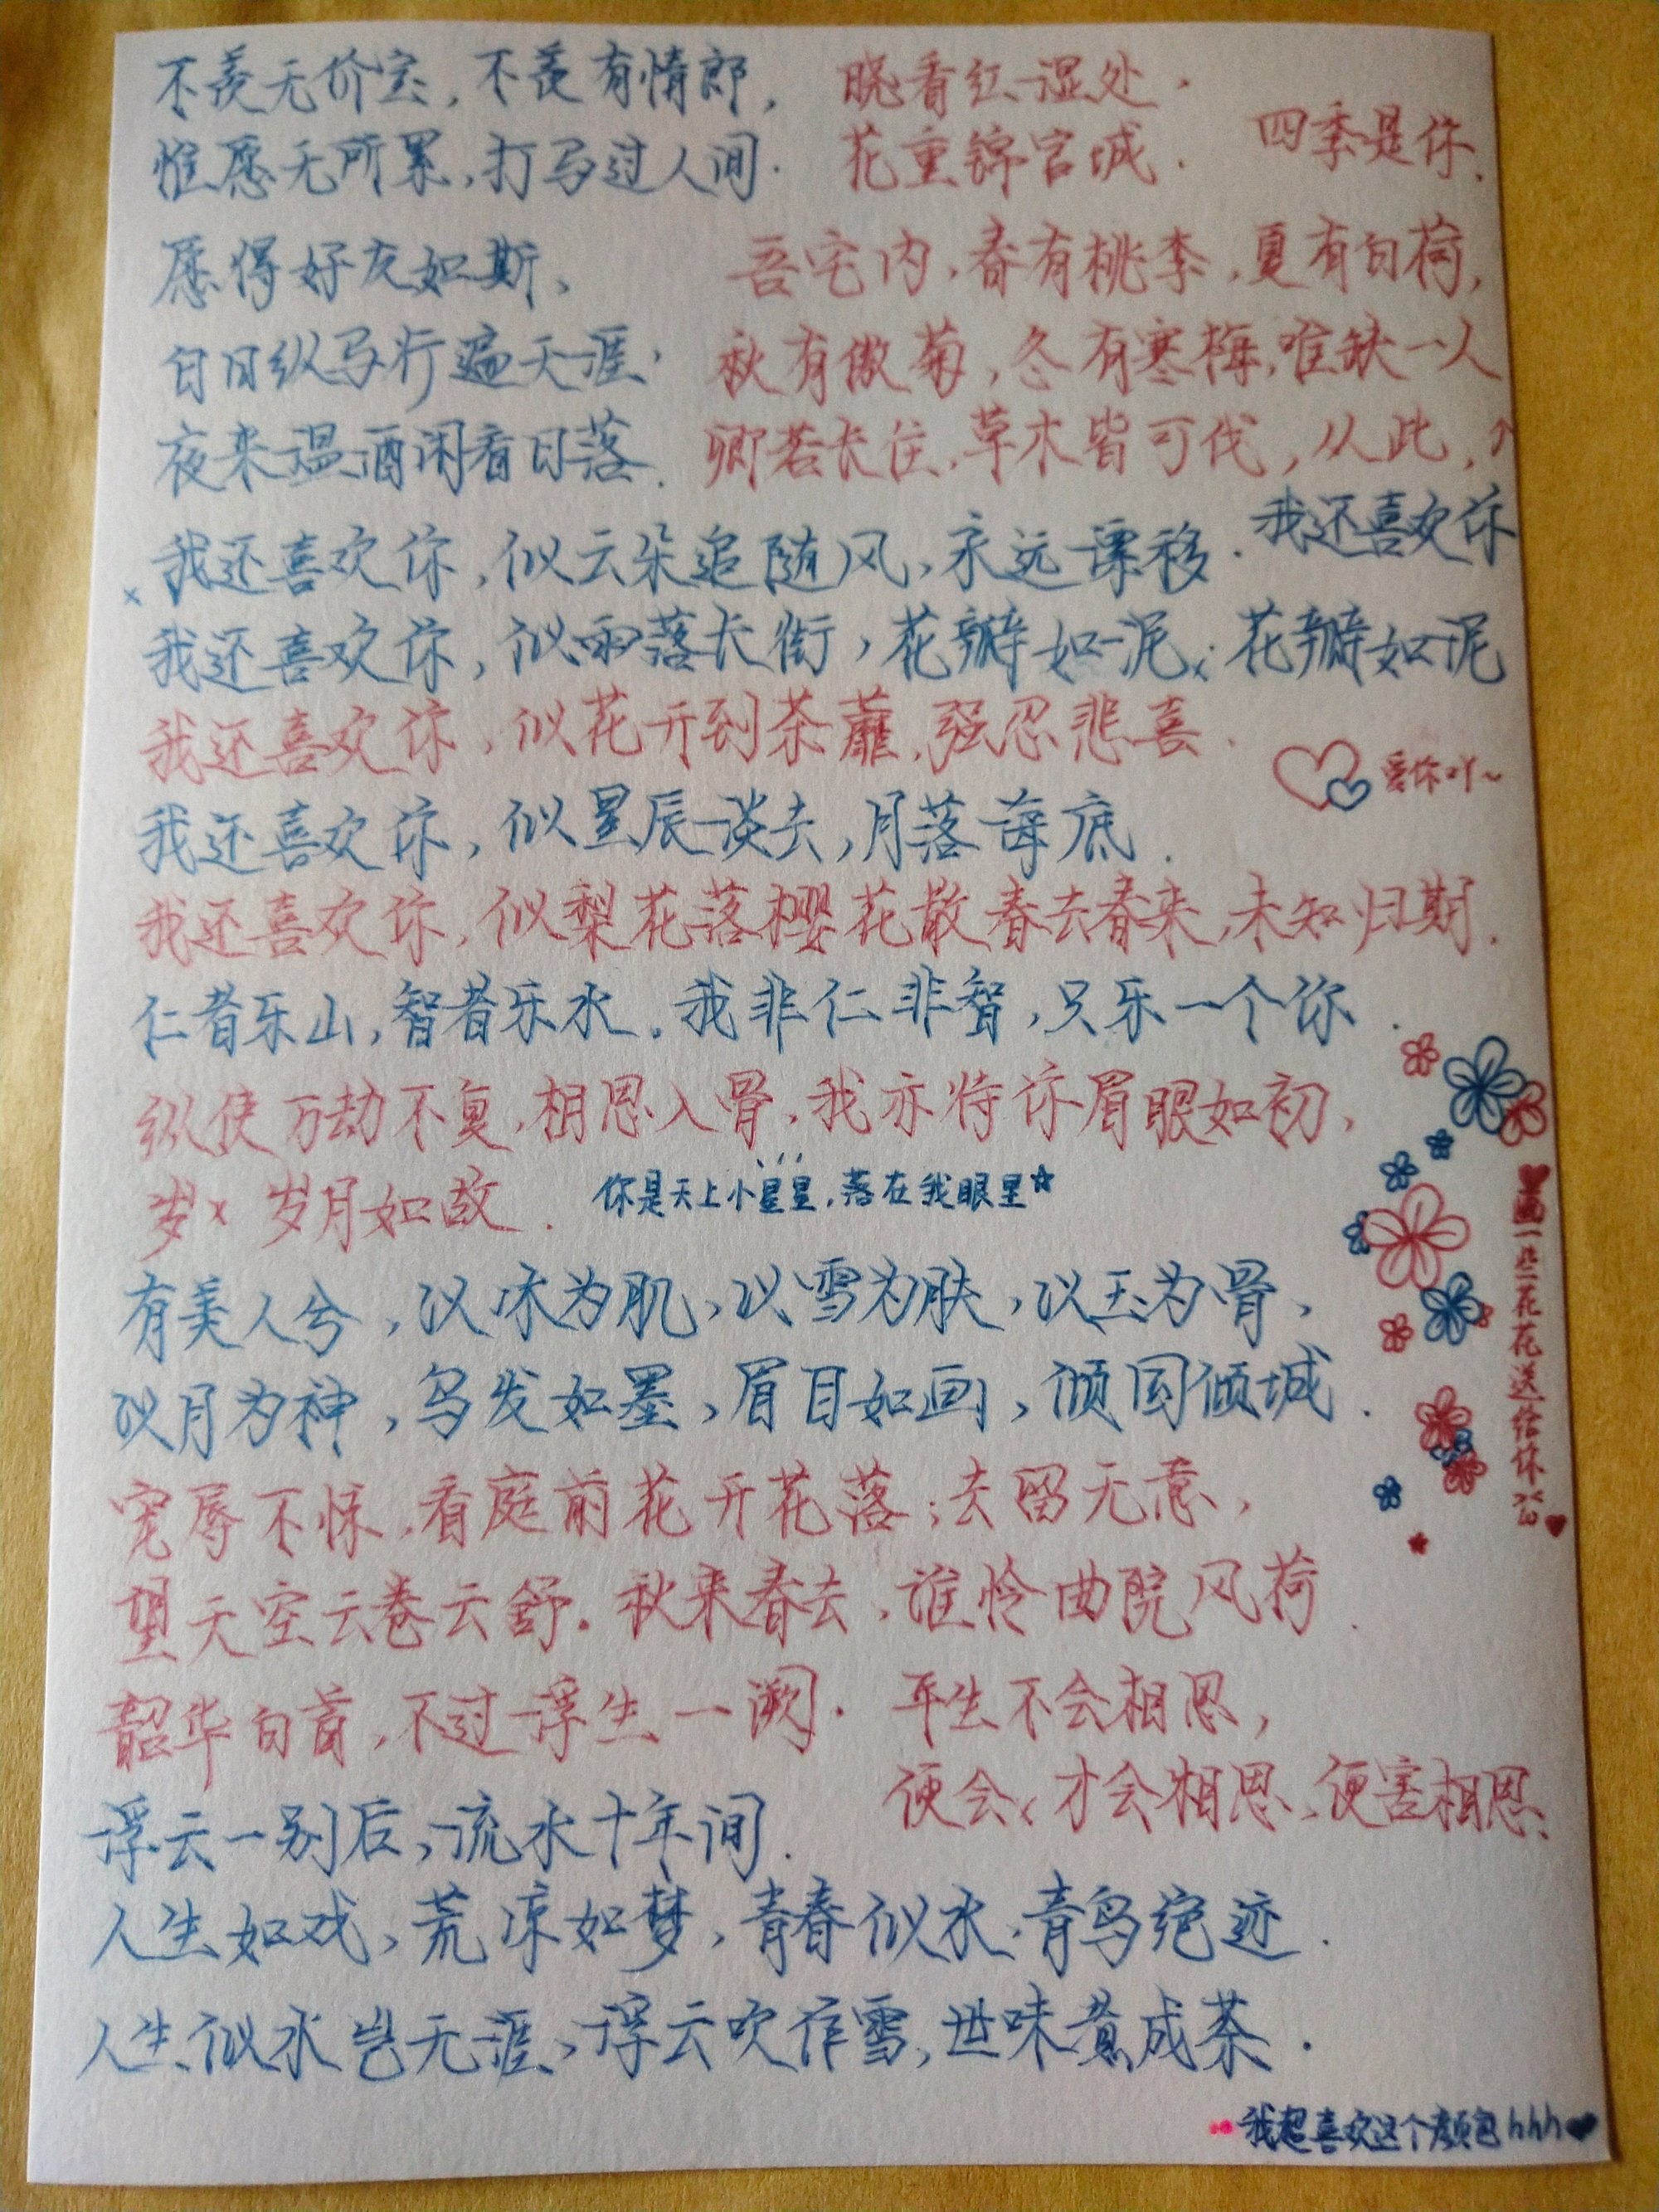 不羡无价宝，不羡有情郎，
惟愿无所累，打马过人间.
晓看红湿处，
花重锦官城.
四季是你.
愿得好友如斯，
白日纵马行遍天涯，
夜来温酒闲看日落.
吾宅内，春有桃李，夏有白荷，
秋有傲菊，冬有寒梅，唯缺一人
卿若长住，草木皆可伐，从此，
我还喜欢你，似云朵追随风，永远漂移.我还喜欢你
我还喜欢你，似雨落长街，花瓣如泥x花瓣如泥
我还喜欢你，似花开到荼蘼，强忍悲喜.
爱你吖~
我还喜欢你，似星辰淡去，月落海底.
我还喜欢你，似梨花落樱花散春去春来，未知归期.
仁者乐山，智者乐水.我非仁非智，只乐一个你.
纵使万劫不复，相思入骨，我亦待你眉眼如初，
岁x岁月如故.
你是天上小星星，落在我眼里☆
有美人兮，以冰为肌，以雪为肤，以玉为骨，
以月为神，乌发如墨，眉目如画，倾国倾城.
画一些花花送给你
宠辱不惊，看庭前花开花落；去留无意，
望天空云卷云舒.秋来春去，谁怜曲院风荷.
韶华白首，不过浮生一阕.
平生不会相思，
便会x才会相思，便害相思.
浮云一别后，流水十年间.
人生如戏，荒凉如梦，青春似水，青鸟绝迹.
人生似水岂无涯，浮云吹作雪，世味煮成茶.
我超喜欢这个颜色hhh